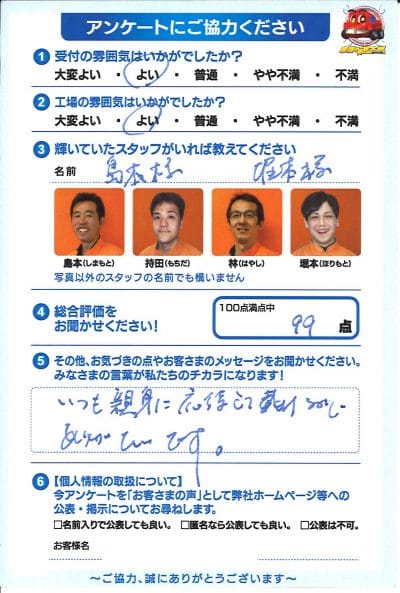 アンケートにご協力ください
1 受付の雰囲気はいかがでしたか?
大変よい ・ よい ・ 普通 ・ やや不満 ・ 不満
2 工場の雰囲気はいかがでしたか?
大変よい ・ よい ・ 普通 ・ やや不満 ・ 不満
3 輝いていたスタッフがいれば教えてください
名前 島本様 堀本様
島本(しまもと) 持田(もちだ) 林(はやし) 堀本(ほりもと)
写真以外のスタッフの名前でも構いません
4 総合評価をお聞かせください!
100点満点中
99 点
5 その他、お気づきの点やお客さまのメッセージをお聞かせください。
みなさまの言葉が私たちのチカラになります!
いつも親身に応待して
ありがたいです。
6 【個人情報の取扱について】
今アンケートを「お客さまの声」として弊社ホームページ等への
公表・掲示についてお尋ねします。
□名前入りで公表しても良い。 □匿名なら公表しても良い。 □公表は不可。
お客様名
～ご協力、誠にありがとうございます～